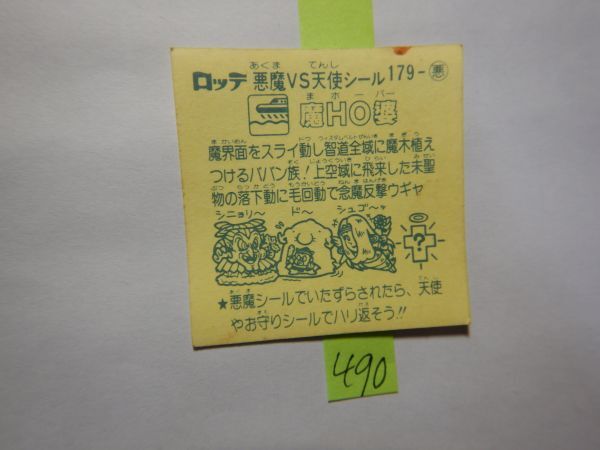 ロッテ 悪魔VS天使シール 179-悪
あくま てんし
まホーバー
魔HO婆
魔界面をスライ動し智道全域に魔木植え
つけるババン族!上空域に飛来した未聖
物の落下動に毛回動で念魔反撃ウギャ
シニョリ〜 ド〜 シュゴ〜ッ
?
★悪魔シールでいたずらされたら、天使
やお守りシールでハリ返そう!!
490